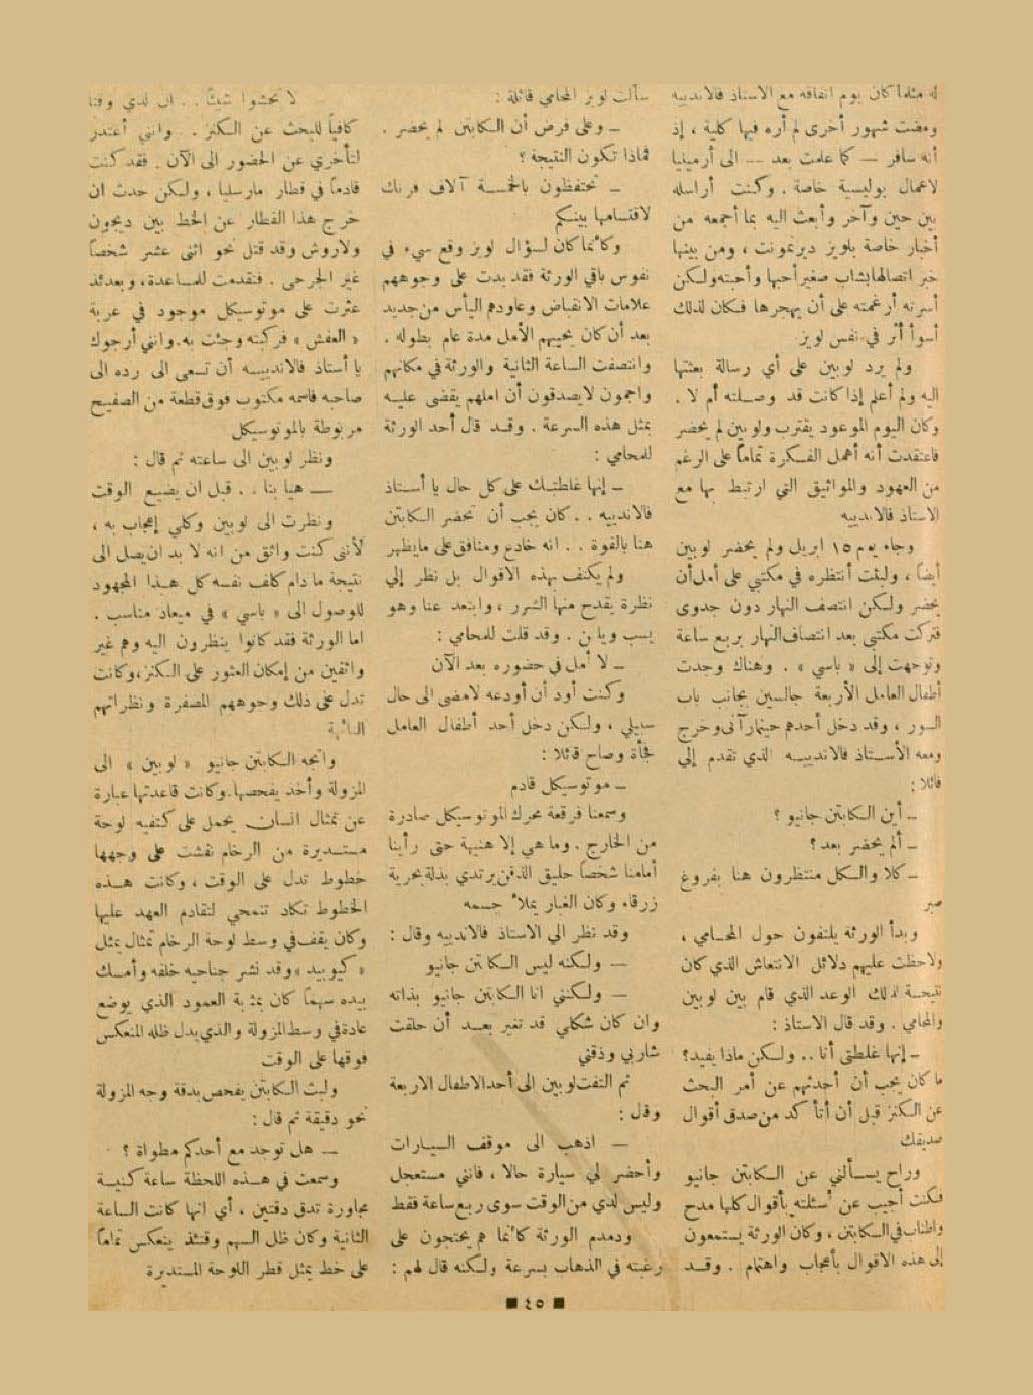 له مثلما كان يوم اتفاقه مع الاستاذ فالاندييه
ومضت شهور أخرى لم أره فيها كلية ، إذ
أنه سافر — كما علمت بعد — الى أرمينيا
لاعمال بوليسية خاصة . وكنت أراسله
بين حين وآخر وأبعث اليه بما أجمعه من
أخبار خاصة بلويز ديرنمونت ، ومن بينها
خبر اتصالها بشاب صغير أحبها وأحبته ولكن
أسرته أرغمته على أن يهجرها فكان لذلك
أسوأ أثر في نفس لويز
ولم يرد لوبين على أي رسالة بعثتها
اليه ولم أعلم إذا كانت قد وصلته أم لا .
وكان اليوم الموعود يقترب ولوبين لم يحضر
فاعتقدت أنه أهمل الفكرة تماماً على الرغم
من العهود والمواثيق التي ارتبط بها مع
الاستاذ فالاندييه
وجاء يوم ١٥ ابريل ولم يحضر لوبين
أيضاً ، ولبثت أنتظره في مكتبي على أمل أن
يحضر ولكن انتصف النهار دون جدوى
فتركت مكتبي بعد انتصاف النهار بربع ساعة
وتوجهت إلى « باسي » . وهناك وجدت
أطفال العامل الأربعة جالسين بجانب باب
السور ، وقد دخل أحدهم حينما رآني وخرج
ومعه الأستاذ فالاندييه الذي تقدم إلي
قائلا :
— أين الكابتن جانيو ؟
— ألم يحضر بعد ؟
— كلا والكل منتظرون هنا بفروغ
صبر
وبدأ الورثة يلتفون حول المحامي ،
ولاحظت عليهم دلائل الانتعاش الذي كان
نتيجة لذلك الوعد الذي قام بين لوبين
والمحامي . وقد قال الاستاذ :
— إنها غلطتي أنا .. ولكن ماذا يفيد؟
ما كان يجب أن أحدثهم عن أمر البحث
عن الكنز قبل أن أتأكد من صدق أقوال
صديقك
وراح يسألني عن الكابتن جانيو
فكنت أجيب عن أسئلته بأقوال كلها مدح
واطناب في الكابتن ، وكان الورثة يستمعون
إلى هذه الاقوال بأعجاب واهتمام . وقد
سألت لويز المحامي قائلة :
— وعلى فرض أن الكابتن لم يحضر .
فماذا تكون النتيجة ؟
— تحتفظون بالخمسة آلاف فرنك
لاقتسامها بينكم
وكأنما كان لسؤال لويز وقع سيء في
نفوس باقي الورثة فقد بدت على وجوههم
علامات الانقباض وعاودهم اليأس من جديد
بعد أن كان يحييهم الأمل مدة عام بطوله .
وانتصفت الساعة الثانية والورثة في مكانهم
واجمون لا يصدقون أن املهم يقضى عليه
بمثل هذه السرعة . وقد قال أحد الورثة
للمحامي :
— إنها غلطتك على كل حال يا أستاذ
فالاندييه .. كان يجب أن تحضر الكابتن
هنا بالقوة .. انه خادع ومنافق على ما يظهر
ولم يكتف بهذه الاقوال بل نظر إلي
نظرة يقدح منها الشرر ، وابتعد عنا وهو
يسب ويلعن . وقد قلت للمحامي :
— لا أمل في حضوره بعد الآن
وكنت أود أن أودعه لامضى الى حال
سبيلي ، ولكن دخل أحد أطفال العامل
فجأة وصاح قائلا :
— موتوسيكل قادم
وسمعنا فرقعة محرك الموتوسيكل صادرة
من الخارج . وما هي إلا هنيهة حتى رأينا
أمامنا شخصاً حليق الذقن يرتدي بدلة بحرية
زرقاء وكان الغبار يملأ جسمه
وقد نظر الي الاستاذ فالاندييه وقال :
— ولكنه ليس الكابتن جانيو
— ولكنني انا الكابتن جانيو بذاته
وان كان شكلي قد تغير بعد أن حلقت
شاربي وذقني
ثم التفت لوبين إلى أحد الاطفال الاربعة
وقل :
— اذهب الى موقف السيارات
وأحضر لي سيارة حالا ، فانني مستعجل
وليس لدي من الوقت سوى ربع ساعة فقط
ودمدم الورثة كأنما هم يحتجون على
رغبته في الذهاب بسرعة ولكنه قال لهم :
لا تخشوا شيئاً .. ان لدي وقتا
كافياً للبحث عن الكنز . وانني أعتذر
لتأخري عن الحضور الى الآن . فقد كنت
قادماً في قطار مارسليا ، ولكن حدث ان
خرج هذا القطار عن الخط بين ديجون
ولاروش وقد قتل نحو اثنى عشر شخصاً
غير الجرحى . فتقدمت للمساعدة ، وبعدئذ
عثرت على موتوسيكل موجود في عربة
« العفش » فركبته وجئت به . وانني أرجوك
يا أستاذ فالاندييه أن تسعى الى رده الى
صاحبه فاسمه مكتوب فوق قطعة من الصفيح
مربوطة بالموتوسيكل
ونظر لوبين الى ساعته ثم قال :
— هيا بنا .. قبل ان يضيع الوقت
ونظرت الى لوبين وكلي إعجاب به ،
لأنني كنت واثق من انه لا بد ان يصل الى
نتيجة ما دام كلف نفسه كل هذا المجهود
للوصول الى « باسي » في ميعاد مناسب .
اما الورثة فقد كانوا ينظرون اليه وهم غير
واثقين من إمكان العثور على الكنز ، وكانت
تدل على ذلك وجوههم المصفرة ونظراتهم
واتجه الكابتن جانيو « لوبين » الى
المزولة وأخذ يفحصها . وكانت قاعدتها عبارة
عن تمثال انسان يحمل على كتفيه لوحة
مستديرة من الرخام نقشت على وجهها
خطوط تدل على الوقت ، وكانت هذه
الخطوط تكاد تنمحي لتقادم العهد عليها
وكان يقف في وسط لوحة الرخام تمثال يمثل
« كيوبيد » وقد نشر جناحيه خلفه وأمسك
بيده سهما كان بمثابة العمود الذي يوضع
عادة في وسط المزولة والذي يدل ظله المنعكس
فوقها على الوقت
ولبث الكابتن يفحص بدقة وجه المزولة
نحو دقيقة ثم قال :
— هل توجد مع أحدكم مطواة ؟
وسمعت في هذه اللحظة ساعة كنيسة
مجاورة تدق دقتين ، أي انها كانت الساعة
الثانية وكان ظل السهم وقتئذ ينعكس تماماً
على خط يمثل قطر اللوحة المستديرة
■ ٤٥ ■